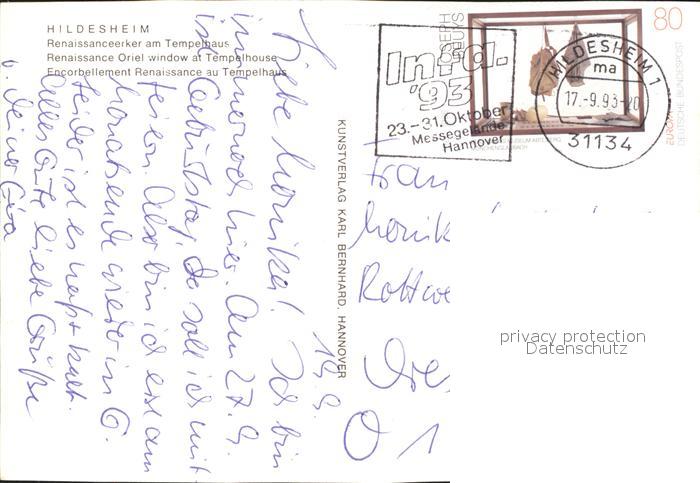 HILDESHEIM
Renaissanceerker am Tempelhaus
Renaissance Oriel window at Tempelhouse
Encorbellement Renaissance au Tempelhaus
KUNSTVERLAG KARL BERNHARD, HANNOVER
80
DEUTSCHE BUNDESPOST
EUROPA
Infa.
'93
23.-31. Oktober
Messegelände
Hannover
HILDESHEIM 1
ma
17.-9.93-20
31134
Liebe Monika! Ich bin
immer noch hier. Am 27.9.
ist Geburtstag, da soll ich mit
feiern. Also bin ich erst am
Monatsende wieder in G.
Leider ist es naß + kalt.
Alles Gute liebe Grüße
Frau
Monik
Rottwe
O 1
privacy protection
Datenschutz